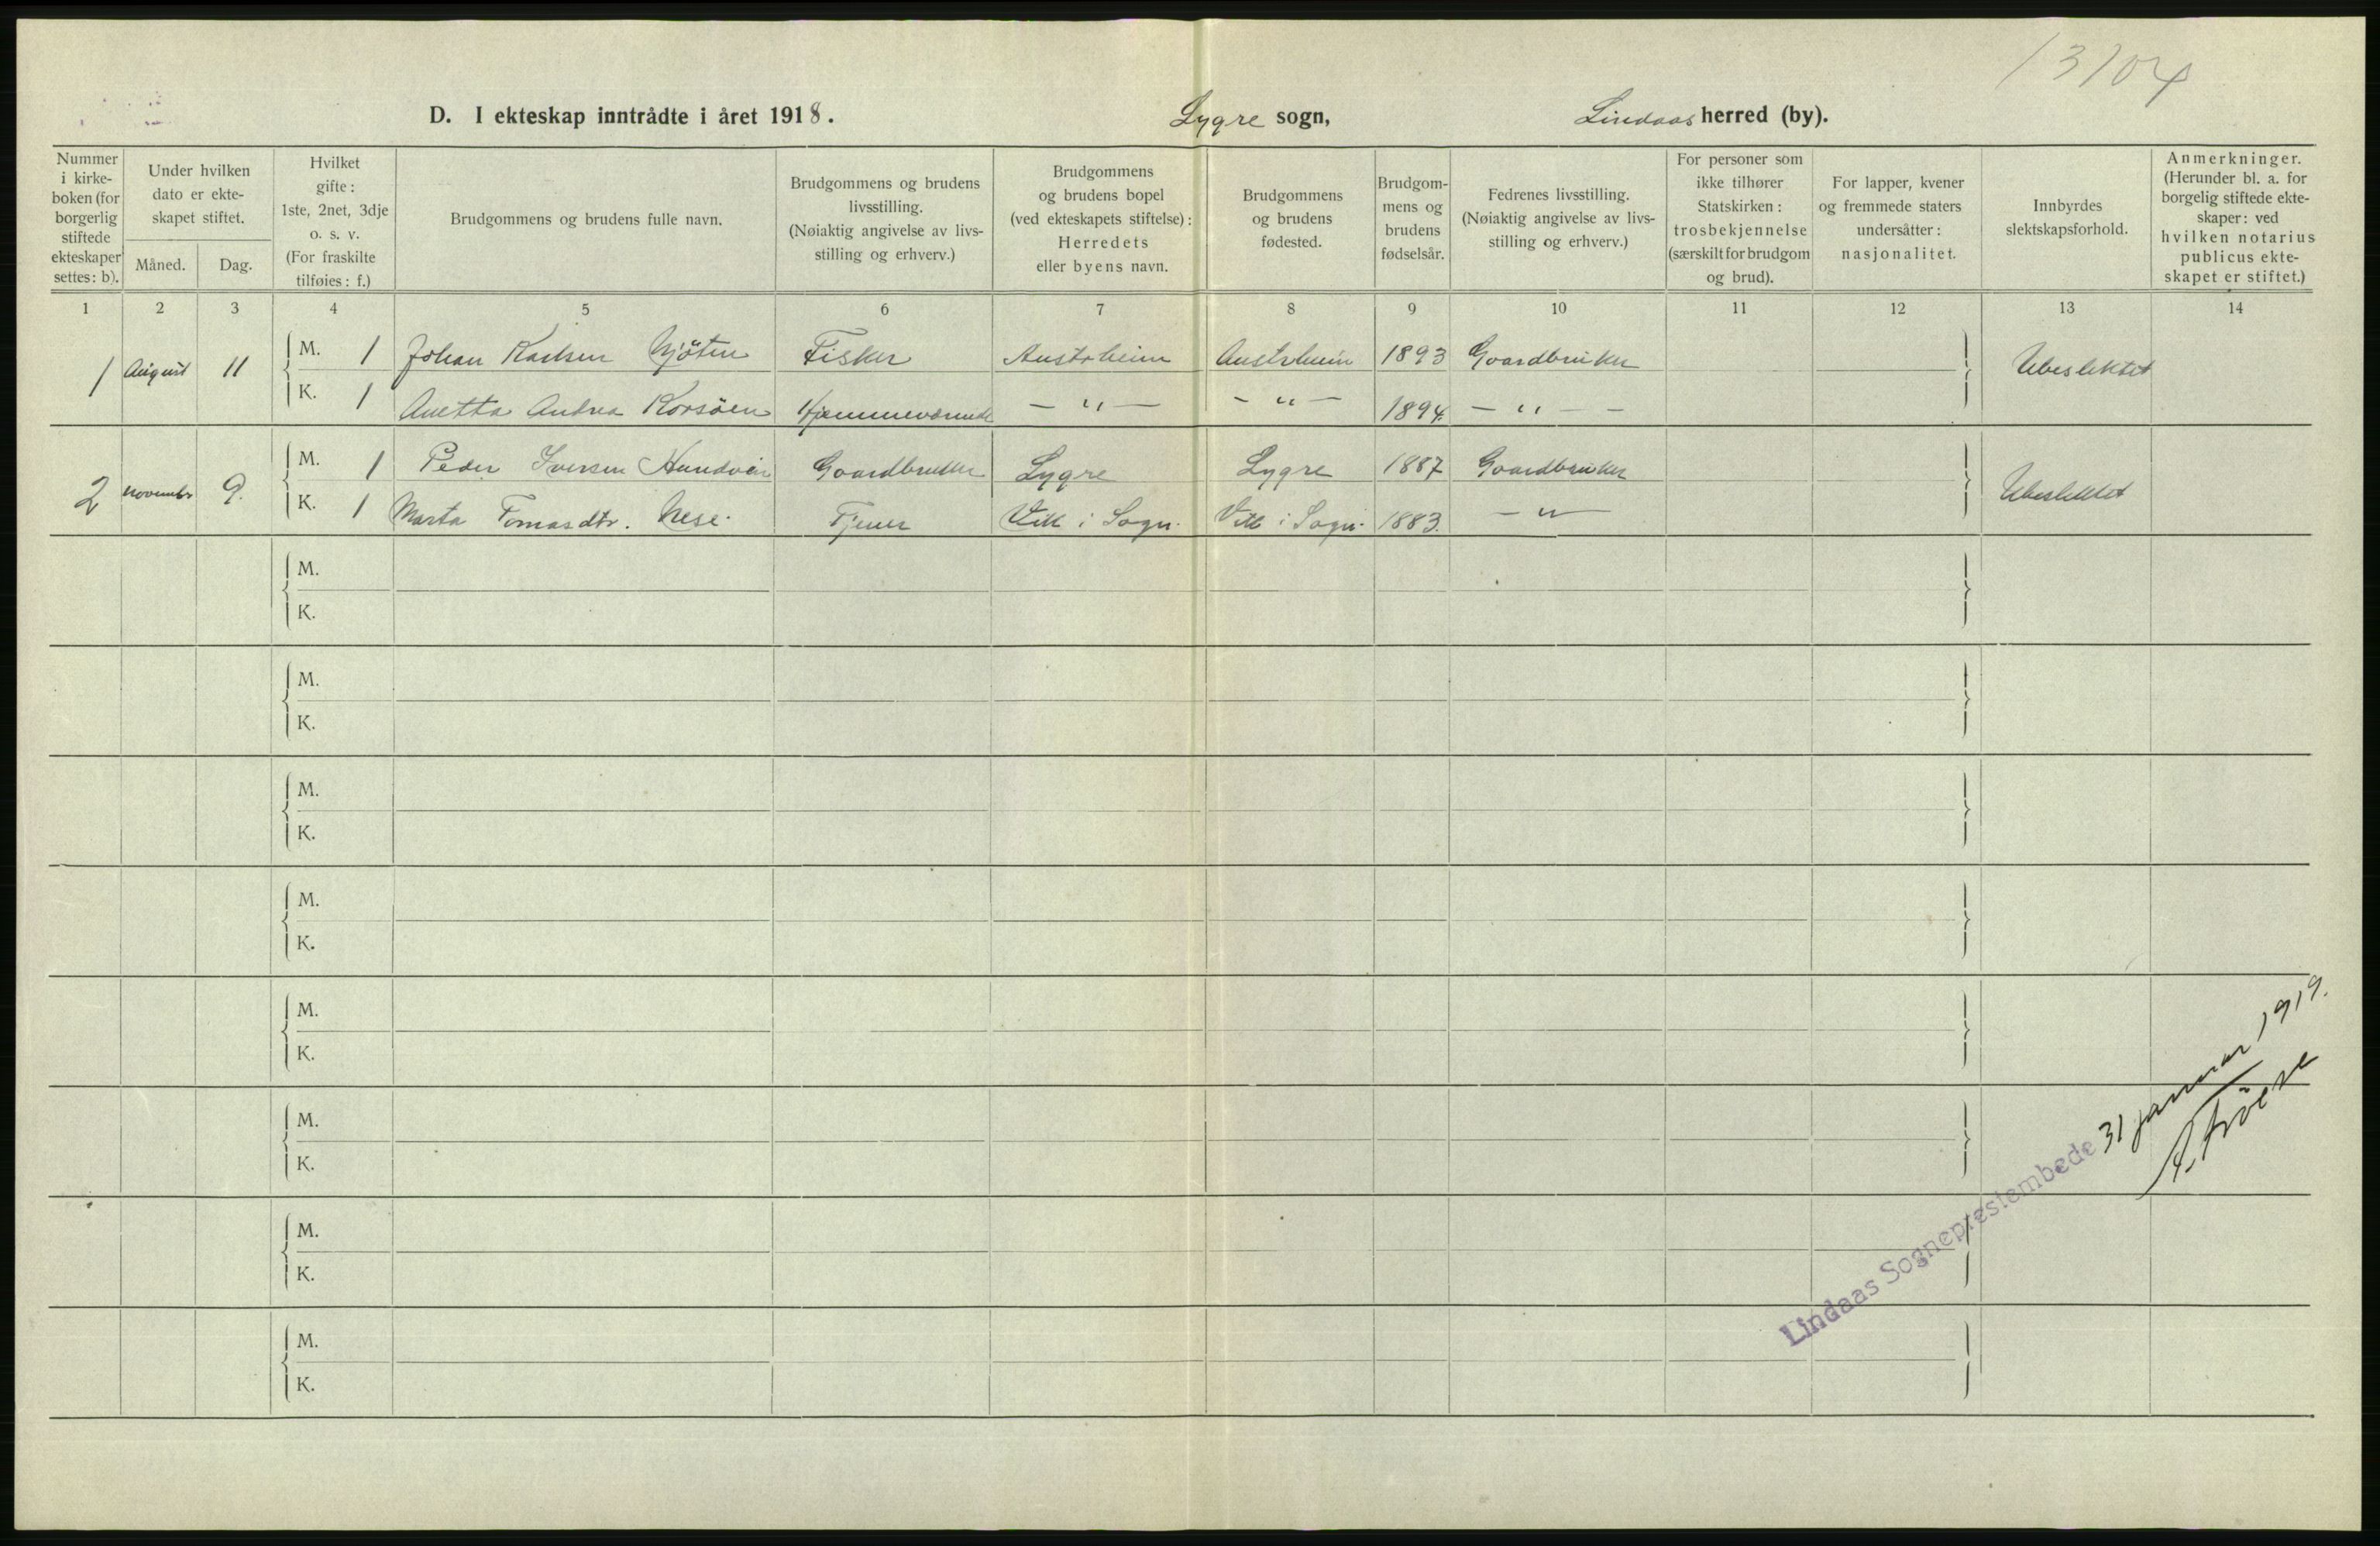 13104
D. I ekteskap inntrådte i året 1918. Lygre sogn, Lindaas herred (by).
Nummer i kirke-boken (for borgerlig stiftede ekteskaper settes: b).
Under hvilken dato er ekte-skapet stiftet.
Måned. Dag.
Hvilket gifte: 1ste, 2net, 3dje o. s. v. (For fraskilte tilføies: f.)
Brudgommens og brudens fulle navn.
Brudgommens og brudens livsstilling. (Nøiaktig angivelse av livs-stilling og erhverv.)
Brudgommens og brudens bopel (ved ekteskapets stiftelse): Herredets eller byens navn.
Brudgommens og brudens fødested.
Brudgom-mens og brudens fødselsår.
Fedrenes livsstilling. (Nøiaktig angivelse av livs-stilling og erhverv.)
For personer som ikke tilhører Statskirken: trosbekjennelse (særskilt for brudgom og brud).
For lapper, kvener og fremmede staters undersåtter: nasjonalitet.
Innbyrdes slektskapsforhold.
Anmerkninger. (Herunder bl. a. for borgelig stiftede ekte-skaper: ved hvilken notarius publicus ekte-skapet er stiftet.)
1 2 3 4 5 6 7 8 9 10 11 12 13 14
1 August 11 M. 1 Johan Karlsen Njöten Fisker Austrheim Austrheim 1893 Gaardbruker Ubeslektet
K. 1 Anetta Andrea Korsöen Hjemmeværende - " - - " - 1894. - " - -
2 novembr 9. M. 1 Peder Iversen Hundvin Gaardbruker Lygre Lygre 1887 Gaardbruker Ubeslektet
K. 1 Marta Tomasdtr. Nese. Tjener Vik i Sogn. Vik i Sogn. 1883. - " -
M.
K.
M.
K.
M.
K.
M.
K.
M.
K.
M.
K.
M.
K.
M.
K.
Lindaas Sogneprestembede 31 januar 1919.